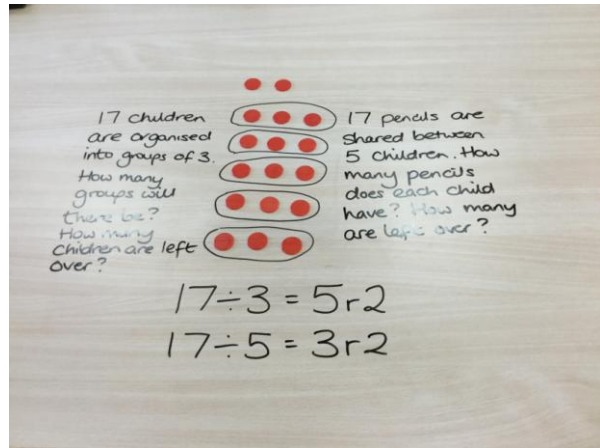 17 children
are organised
into groups of 3.
How many
groups will
there be?
How many
children are left
over?
17 pencils are
shared between
5 children. How
many pencils
does each child
have? How many
are left over?
17÷3 = 5r2
17÷5 = 3r2